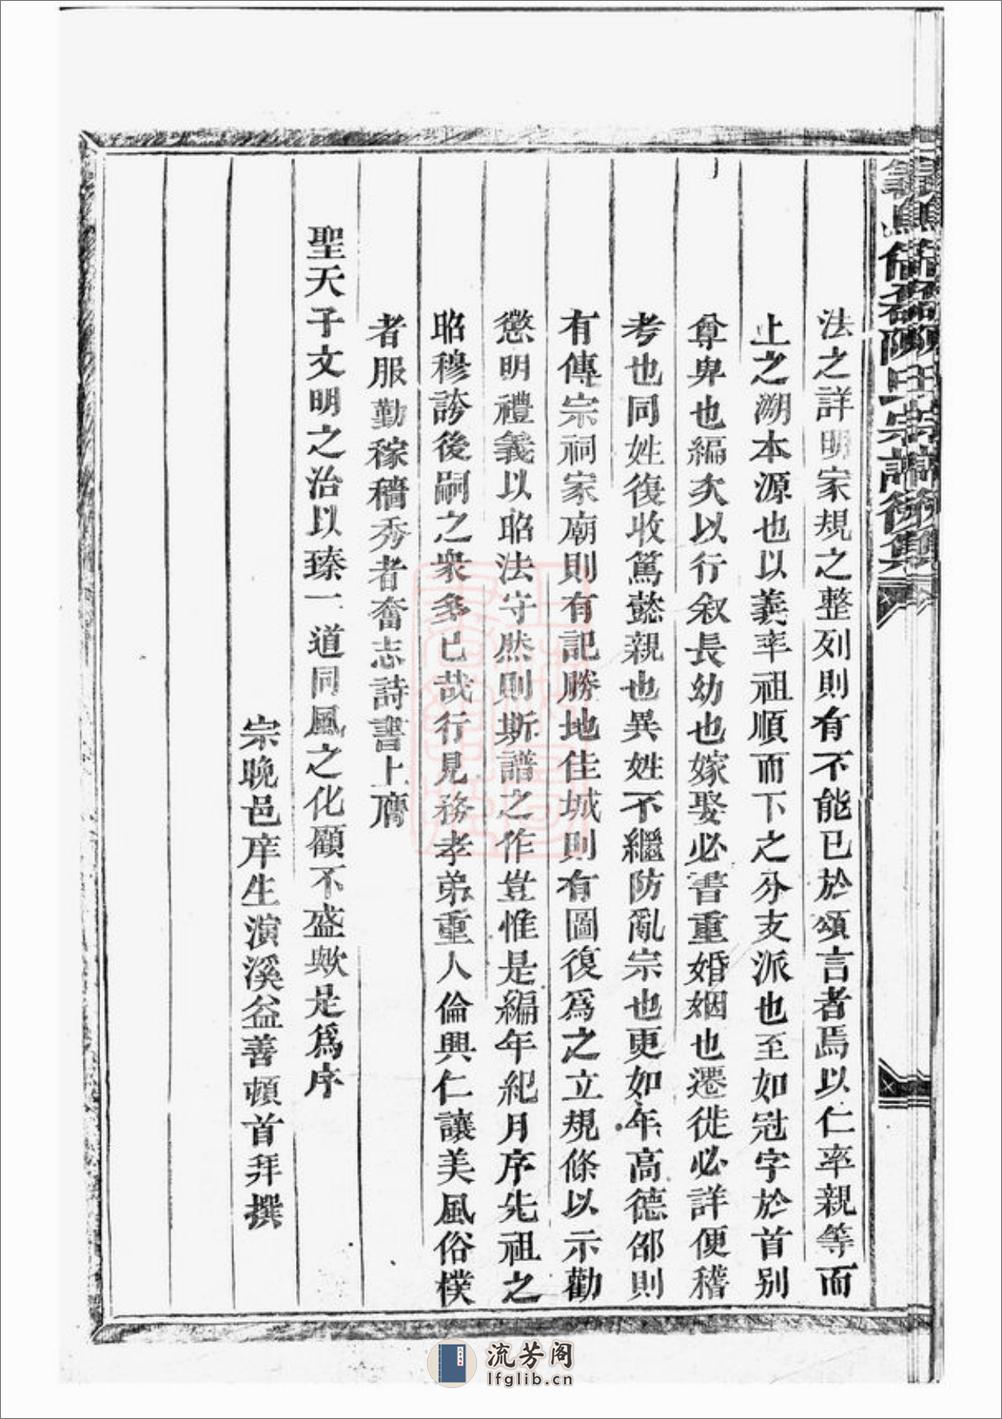 法之詳明家規之整列則有不能已於頌言者焉以仁率親等而
上之溯本源也以義率祖順而下之分支派也至如冠字於首别
尊卑也編次以行叙長幼也嫁娶必書重婚姻也遷徙必詳便稽
考也同姓復收篤懿親也異姓不繼防亂宗也更如年高德邵則
有傳宗祠家廟則有記勝地佳城則有圖復爲之立規條以示勸
懲明禮義以昭法守然則斯譜之作豈惟是編年紀月序先祖之
昭穆誇後嗣之衆多已哉行見務孝弟重人倫興仁讓美風俗樸
者服勤稼穡秀者奮志詩書上膺
聖天子文明之治以臻一道同風之化顧不盛歟是爲序
宗晚邑庠生演溪益善頓首拜撰
流芳阁
lfglib.cn